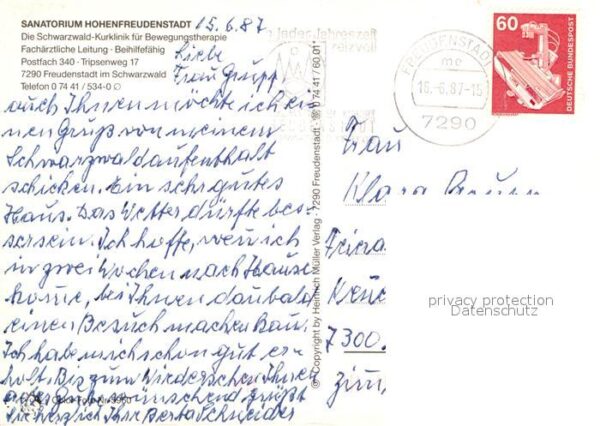 SANATORIUM HOHENFREUDENSTADT
Die Schwarzwald-Kurklinik für Bewegungstherapie
Fachärztliche Leitung · Beihilfefähig
Postfach 340 · Tripsenweg 17
7290 Freudenstadt im Schwarzwald
Telefon 0 74 41 / 534-0
15.6.87
Liebe
Frau
auch Ihnen möchte ich ei-
nen Gruß von meinem
Schwarzwaldaufenthalt
schicken. Ein sehr gutes
Haus. Das Wetter dürfte bes-
ser sein. Ich hoffe, wenn ich
in zwei Wochen nach Hause
komme, bei Ihnen
einen Besuch machen kann.
Ich habe mich schon gut er-
holt. Bis zum Wiedersehen Ihnen
grüßt
Sie herzlich Ihre
© Copyright by Heinrich Müller Verlag · 7290 Freudenstadt · ☎ 0 74 41 / 60 01
FREUDENSTADT
me
16.-6.87-15
7290
60
DEUTSCHE BUNDESPOST
Frau
Klara
7300
privacy protection
Datenschutz